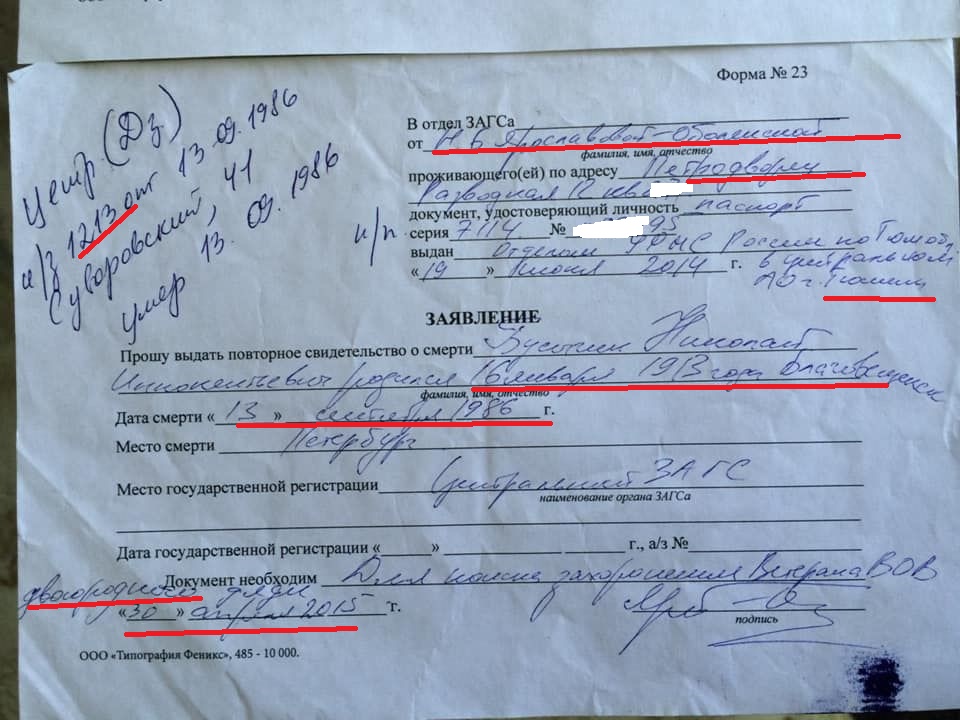 Форма № 23
Центр. (Дз)
а/з 1213 от 13 09. 1986
Суворовский, 41
умер 13. 09. 1986
и/п.
В отдел ЗАГСа
от Н Б Ярославовой-Оболенской
фамилия, имя, отчество
проживающего(ей) по адресу Петродворец
Разводная 12
документ, удостоверяющий личность паспорт
серия 7114 № 95
выдан Отделом УФМС России по Тюмоб.
« 19 » июня 2014 г. в центральном
АО г. Тюмени
ЗАЯВЛЕНИЕ
Прошу выдать повторное свидетельство о смерти Николай
Иннокентьевич родился 16 января 1913 года Благовещенск
фамилия, имя, отчество
Дата смерти « 13 » сентября 1986 г.
Место смерти Петербург
Место государственной регистрации Центральный ЗАГС
наименование органа ЗАГСа
Дата государственной регистрации « » г., а/з №
Документ необходим Для поиска захоронения Ветерана ВОВ
двоюродного дяди
« 30 » апреля 2015 г.
подпись
ООО «Типография Феникс», 485 - 10 000.